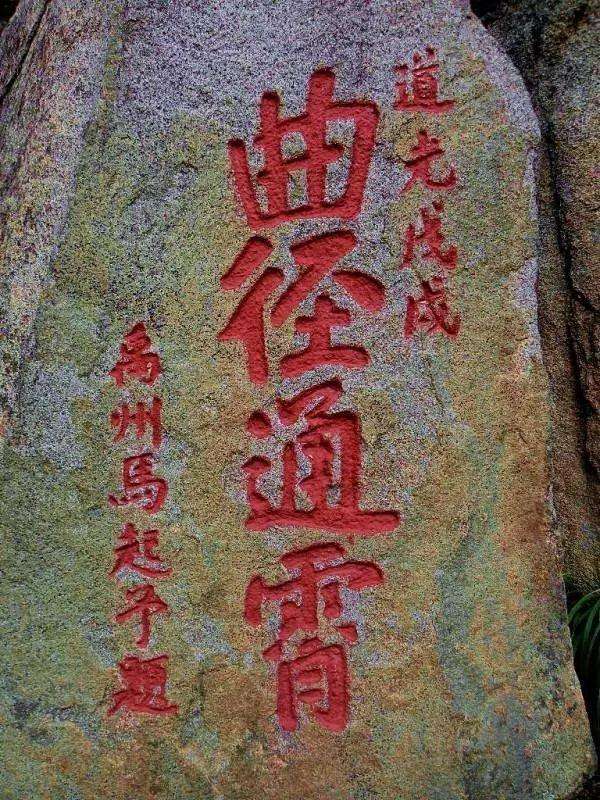 道光戊戌
曲径通霄
禹州馬起予題